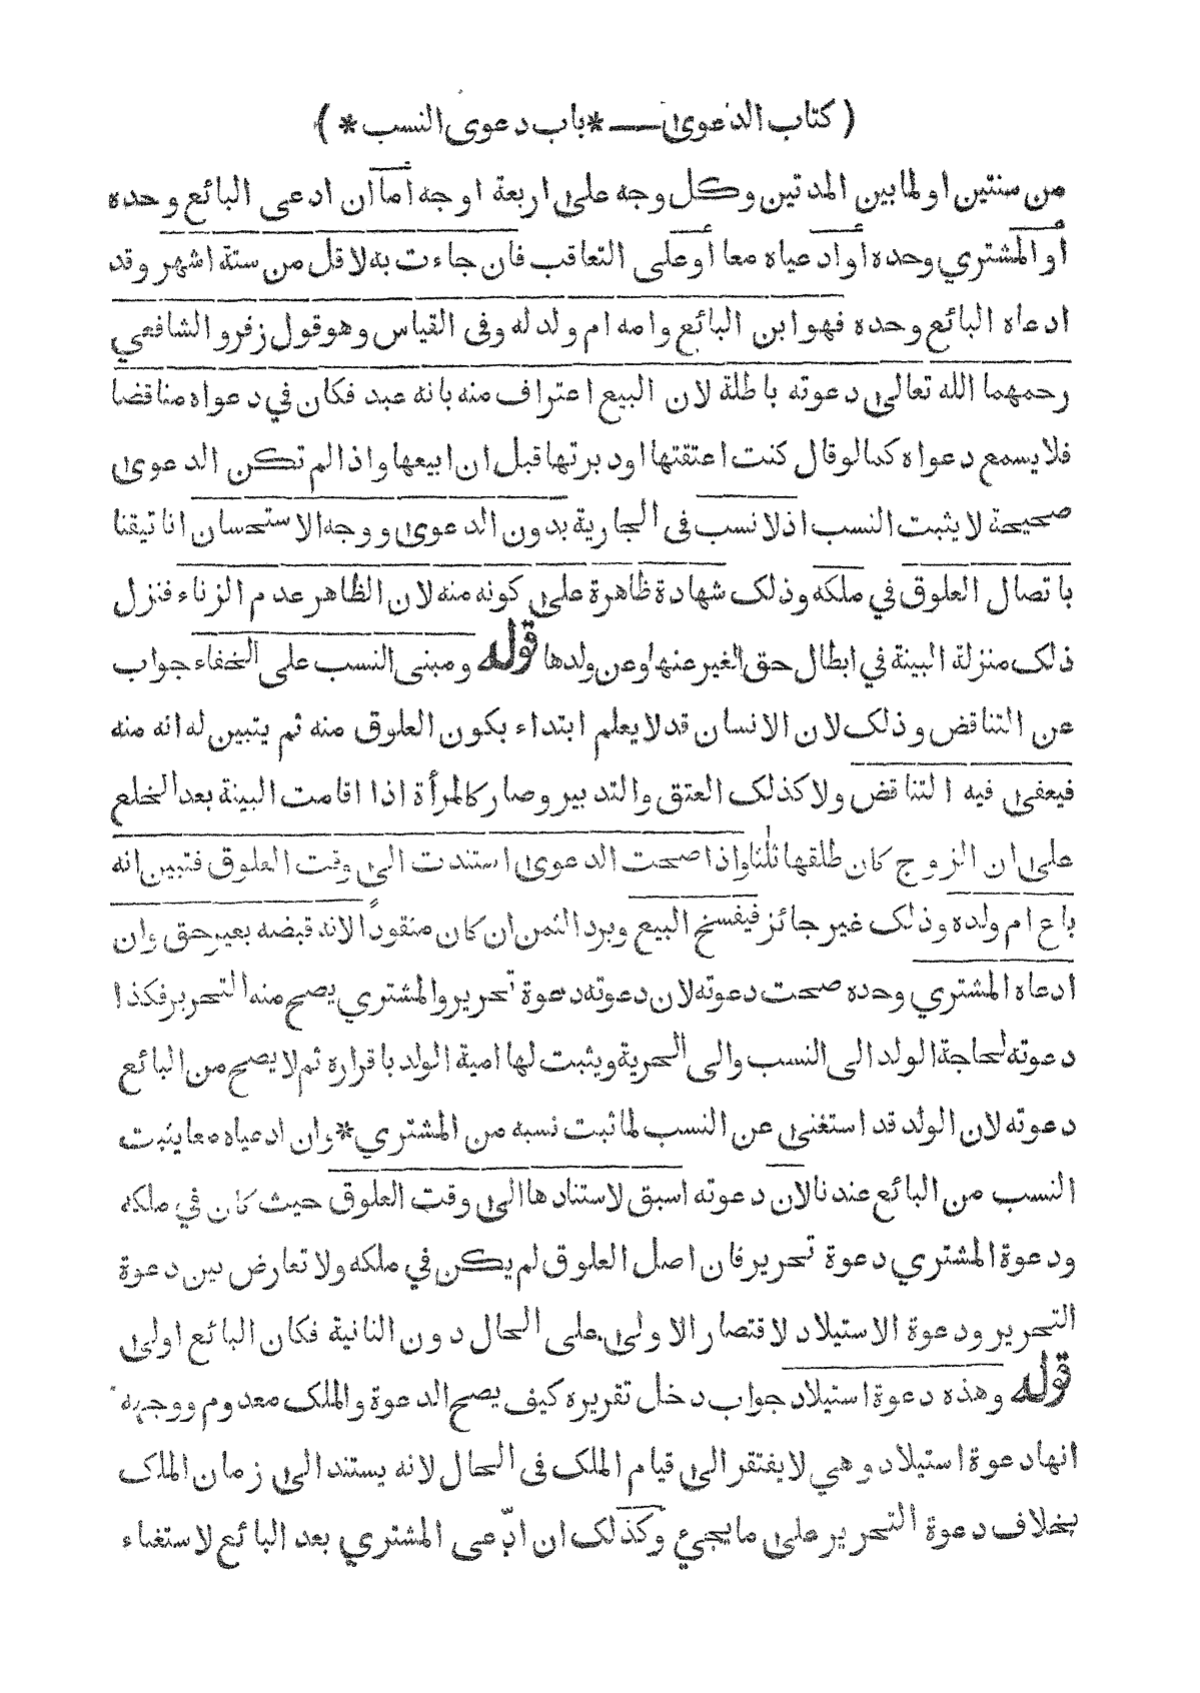 ( كتاب الدعوى — * باب دعوى النسب * )
من سنتين او لما بين المدتين وكل وجه على اربعة اوجه اما ان ادعى البائع وحده
أو المشتري وحده او ادعياه معا أو على التعاقب فان جاءت به لاقل من ستة اشهر وقد
ادعاه البائع وحده فهو ابن البائع وامه ام ولد له وفى القياس وهو قول زفر والشافعي
رحمهما الله تعالى دعوته باطلة لان البيع اعتراف منه بانه عبد فكان في دعواه مناقضا
فلا يسمع دعواه كما لو قال كنت اعتقتها او دبرتها قبل ان ابيعها واذا لم تكن الدعوى
صحيحة لا يثبت النسب اذ لا نسب فى الجارية بدون الدعوى ووجه الاستحسان انا تيقنا
باتصال العلوق في ملكه وذلك شهادة ظاهرة على كونه منه لان الظاهر عدم الزناء فنزل
ذلك منزلة البينة في ابطال حق الغير عنها وعن ولدها قوله ومبنى النسب على الخفاء جواب
عن التناقض وذلك لان الانسان قد لا يعلم ابتداء بكون العلوق منه ثم يتبين له انه منه
فيعفى فيه التناقض ولا كذلك العتق والتدبير وصار كالمرأة اذا اقامت البينة بعد الخلع
على ان الزوج كان طلقها ثلثا واذا صحت الدعوى استندت الى وقت العلوق فتبين انه
باع ام ولده وذلك غير جائز فيفسخ البيع ويرد الثمن ان كان منقوداً لانه قبضه بغير حق وان
ادعاه المشتري وحده صحت دعوته لان دعوته دعوة تحرير والمشتري يصح منه التحرير فكذا
دعوته لحاجة الولد الى النسب والى الحرية ويثبت لها امية الولد باقراره ثم لا يصح من البائع
دعوته لان الولد قد استغنى عن النسب لما ثبت نسبه من المشتري * وان ادعياه معا يثبت
النسب من البائع عندنا لان دعوته اسبق لاستنادها الى وقت العلوق حيث كان في ملكه
ودعوة المشتري دعوة تحرير فان اصل العلوق لم يكن في ملكه ولا تعارض بين دعوة
التحرير ودعوة الاستيلاد لاقتصار الاولى على الحال دون الثانية فكان البائع اولى
قوله وهذه دعوة استيلاد جواب دخل تقريره كيف يصح الدعوة والملك معدوم ووجهه
انها دعوة استيلاد وهي لا يفتقر الى قيام الملك فى الحال لانه يستند الى زمان الملك
بخلاف دعوة التحرير على ما يجيء وكذلك ان ادّعى المشتري بعد البائع لاستغناء